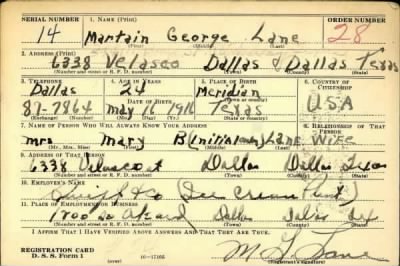 SERIAL NUMBER 1. NAME (Print) ORDER NUMBER
14 Martain George Lane 28
(First) (Middle) (Last)
2. ADDRESS (Print)
6338 Velasco Dallas Dallas Texas
(Number and street or R. F. D. number) (Town) (County) (State)
3. TELEPHONE 4. AGE IN YEARS 5. PLACE OF BIRTH 6. COUNTRY OF CITIZENSHIP
Dallas 24 Meridian
DATE OF BIRTH (Town or county)
87-7864 May 16 1916 Texas USA
(Exchange) (Number) (Mo.) (Day) (Yr.) (State or country)
7. NAME OF PERSON WHO WILL ALWAYS KNOW YOUR ADDRESS 8. RELATIONSHIP OF THAT PERSON
Mrs Mary B (initial only) Lane Wife
(Mr., Mrs., Miss) (First) (Middle) (Last)
9. ADDRESS OF THAT PERSON
6338 Dallas Dallas Texas
(Number and street or R. F. D. number) (Town) (County) (State)
10. EMPLOYER'S NAME
Swift & Co (Ice Cream Plant)
11. PLACE OF EMPLOYMENT OR BUSINESS
1700 Dallas Dallas Tex
(Number and street or R. F. D. number) (Town) (County) (State)
I AFFIRM THAT I HAVE VERIFIED ABOVE ANSWERS AND THAT THEY ARE TRUE.
REGISTRATION CARD
D. S. S. Form 1 16-17105 M G Lane
(Registrant's signature)